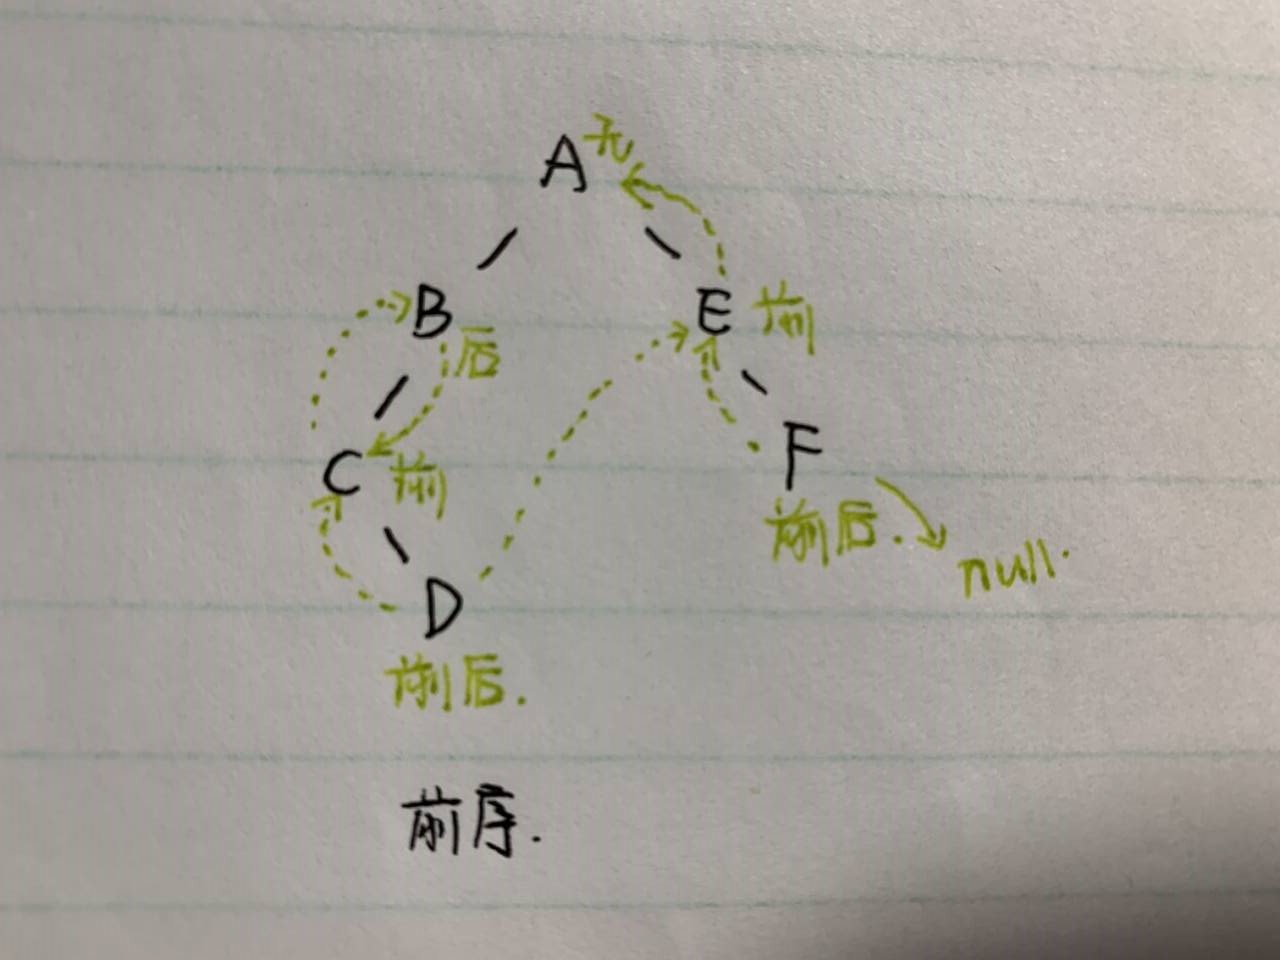 A 无
B E 前
后
C 前 F
前后.
null.
D
前后.
前序.